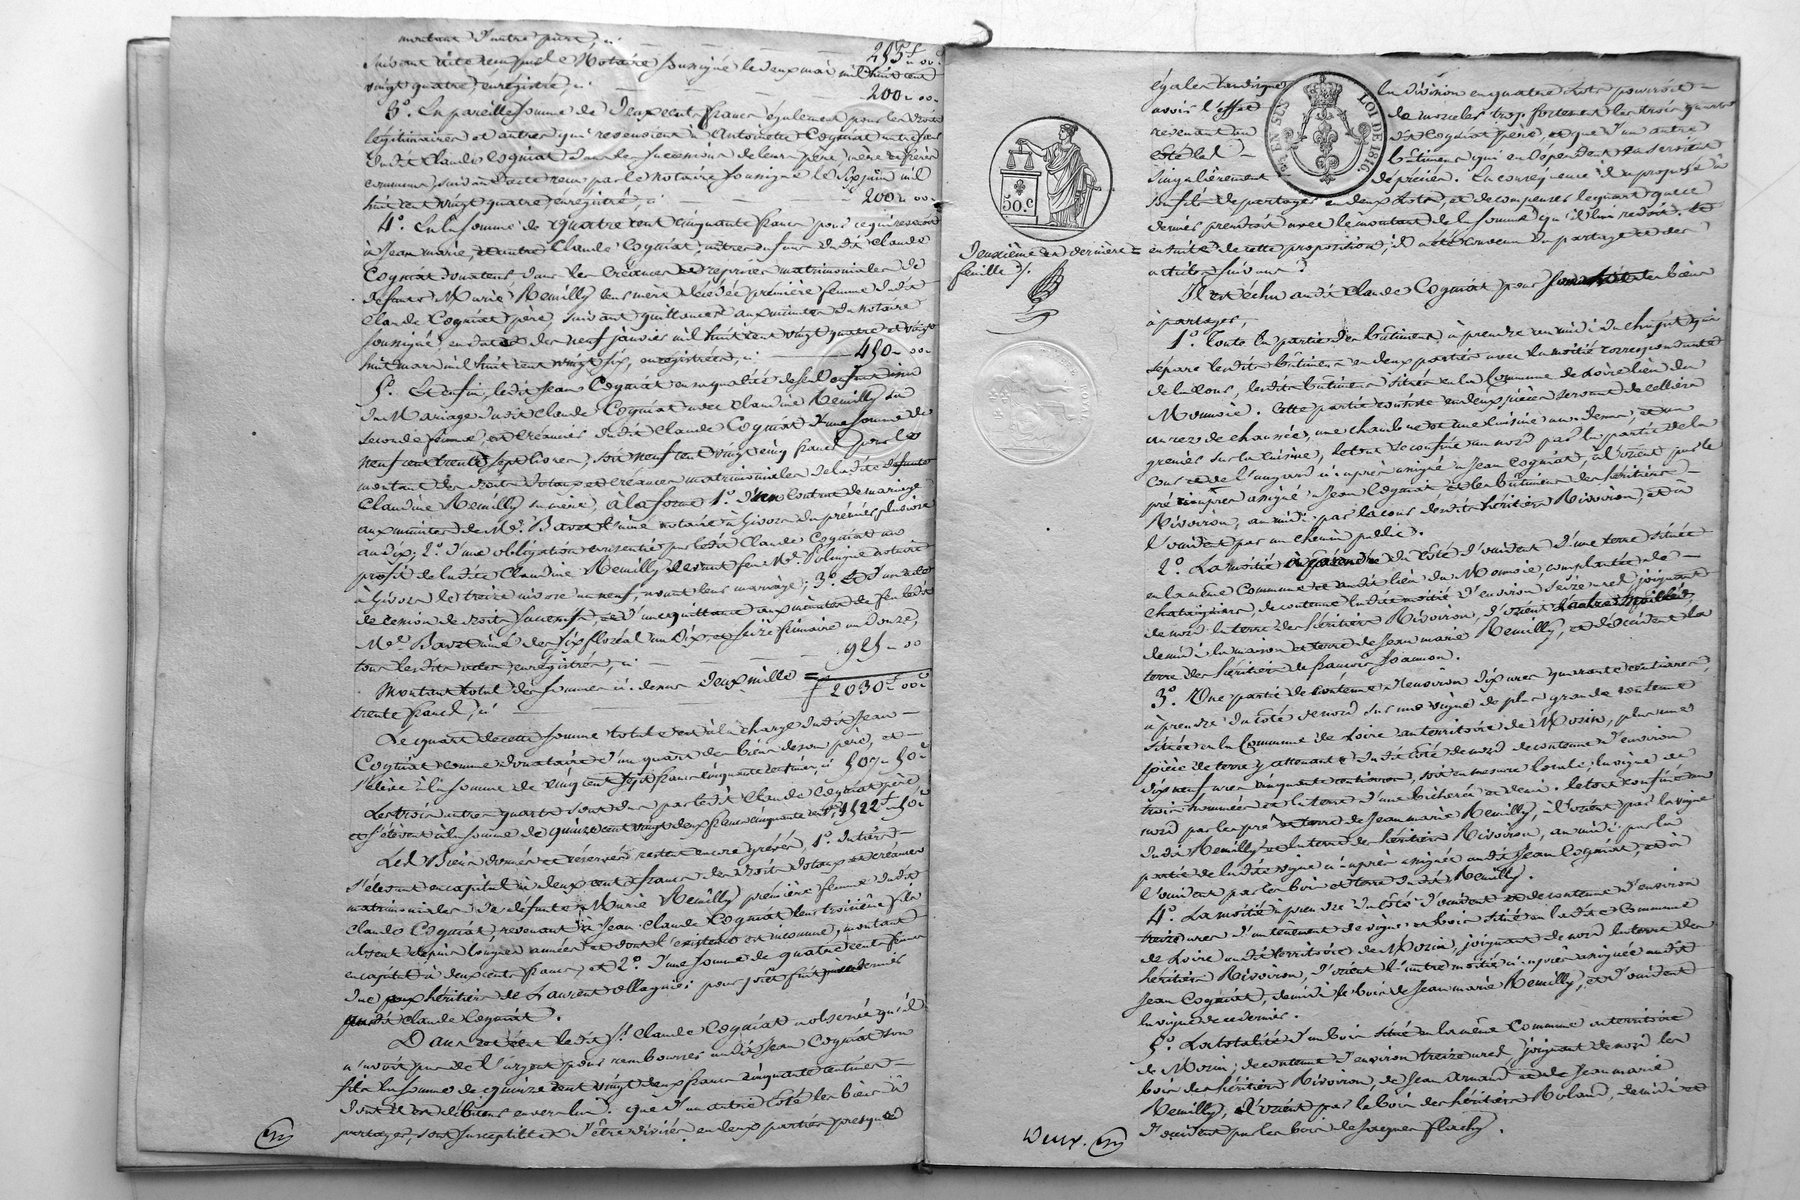 montant d'autre part, ci 255 f 00
suivant acte reçu par le Notaire soussigné le deux mai mil huit cent
vingt quatre, enregistré, ci 200 00
3º. En pareille somme de Deux cent francs également pour les droits
légitimaires et autres qui revenoient à Antoinette Cogniat autre sœur
dudit Claude Cogniat dans les successions de leurs père, mère et frères
communs, suivant acte reçu par le notaire soussigné le six juin mil
huit cent vingt quatre, enregistré, ci 200 00
4º. En la somme de quatre cent cinquante francs pour ce qui revenoit
à Jean marie, et autre Claude Cogniat, autres enfans dudit Claude
Cogniat donateur, dans les créances et reprises matrimoniales de
défunte Marie Remilly leur mère décédée première femme dudit
Claude Cogniat père, suivant quittances aux minutes du notaire
soussigné, en date des neuf janvier mil huit cent vingt quatre et vingt
huit mars mil huit cent vingt six, enregistrées, ci 450 00
5º. Et enfin, ledit Jean Cogniat en sa qualité de seul enfant issu
du Mariage dudit Claude Cogniat avec Claudine Remilly sa
seconde femme, est créancier dudit Claude Cogniat d'une somme de
neuf cent trente sept livres, soit neuf cent vingt cinq francs pour le
montant des droits dotaux et créances matrimoniales de ladite défunte
Claudine Remilly sa mère, à la forme 1º. D'un Contrat de mariage
aux minutes de Me. Bavet l'aîné notaire à Givors du premier pluviose
an dix; 2º. d'une obligation consentie par ledit Claude Cogniat au
profit de ladite Claudine Remilly devant feu Me. notaire
à Givors le treize nivose an neuf, avant leur mariage; 3º. Et d'un acte
de cession de droits successifs, et d'une quittance aux minutes de feu ledit
Me. Bavet aîné des six floréal an Dix, et seize frimaire an onze,
tous lesdits actes enregistrés, ci 925 00
Montant total des sommes ci-dessus Deux mille
trente francs, ci 2030 f 00 c
Le quart de cette somme totale est à la charge dudit Jean
Cogniat comme donataire d'un quart des biens de son père, et
s'élève à la somme de cinq cent sept francs cinquante centimes, ci 507 50 c
Les trois autres quarts sont dus par ledit Claude Cogniat père,
et s'élèvent à la somme de quinze cent vingt deux francs cinquante cent. 1522 f 50 c
Les Biens donnés et réservés restent encore grévés, 1º. Intérêts
s'élevant en capital à deux cent francs des droits dotaux et créances
matrimoniales de défunte Marie Remilly première femme dudit
Claude Cogniat, revenant à Jean Claude Cogniat leur troisième fils
absent depuis longues années et dont l'existence est inconnue, montant
en capital à deux cents francs, et 2º. d'une somme de quatre cent francs
due aux héritiers de Laurent Ollagnier pour prêt fait au dernier
audit Claude Cogniat.
Dans cet état ledit Sr. Claude Cogniat a observé qu'il
n'avoit pas de l'argent pour rembourser audit Jean Cogniat son
fils la somme de quinze cent vingt deux francs cinquante centimes
dont il est débiteur envers lui: que d'un autre côté les biens à
partager, sont susceptibles d'être divisés en deux parties presque
égales tandisque la division en quatre lots pourroit
avoir l'effet de morceler trop fortement les trois quarts
revenant au dit Cogniat père, et que d'un autre
côté le bâtiment qui en dépendent en seroient
singulièrement dépréciés. En conséquence il a proposé à
son fils de partager en deux lots, et de compenser le quart que ce
dernier prendroit avec le montant de la somme qu'il lui redoit. Et
ensuite de cette proposition, il a été convenu du partage et des
articles suivans:
LOI DE 1816.
EN SUS
50. C
Deuxième et dernière
feuille
Il est échu audit Claude Cogniat pour les biens
à partager,
1º. Toute la partie des bâtimens à prendre au midi du chapit qui
sépare lesdits bâtimens en deux parties avec la moitié correspondante
de la cour, lesdits bâtimens situés en la Commune de Loire lieu du
Monnoie. Cette partie consiste en deux pièces servant de cellier
au rez de chaussée, une chambre et une cuisine au dessus, et un
grenier sur la cuisine, le tout se confine au nord par la partie de la
cour et de l'angard ci après assigné à Jean Cogniat, à l'orient par le
pré ci après assigné Jean Cogniat et les bâtimens des héritiers
Rivoiron, au midi par la cour desdits héritiers Rivoiron, et à
l'occident par un chemin public.
2º. La moitié à prendre du côté d'occident d'une terre située
en la même Commune et audit lieu du Monnoie, complantée de
chataigniers, de contenue ladite moitié d'environ seize ares, joignant
de nord la terre des héritiers Rivoiron, d'orient l'autre moitié,
de midi la maison et terre de Jean marie Remilly, et d'occident la
terre des héritiers de françois Joannon.
3º. Une partie de contenue d'environ dix ares quarante centiares,
à prendre du côté de nord sur une vigne de plus grande contenue
située en la Commune de Loire au territoire de Morin, plus une
pièce de terre y attenant du dit côté de nord de contenue d'environ
dix neuf ares cinquante centiares, soit en mesure locale, la vigne de
trois hommées et la terre d'une bicherée et demi. Le tout confiné au
nord par les pré et terre de Jean marie Remilly, à l'orient par la vigne
dudit Remilly et la terre des héritiers Rivoiron, au midi par la
partie de ladite vigne ci après assignée audit Jean Cogniat, et à
l'occident par les bois et terre dudit Remilly.
4º. La moitié à prendre du côté d'occident et de contenue d'environ
treize ares d'un tènement de vigne et bois situé en ladite Commune
de Loire audit territoire de Morin, joignant de nord la terre des
héritiers Rivoiron, d'orient l'autre moitié ci-après assignée audit
Jean Cogniat, de midi le bois de Jean marie Remilly, et d'occident
la vigne de ce dernier.
5º. La totalité d'un bois situé en la même Commune au territoire
de Morin, de contenue d'environ treize ares, joignant de nord les
bois des héritiers Rivoiron, de Jean Arnaud et de Jean marie
Remilly, d'orient par le bois des héritiers Roland, de midi et
d'occident par les bois de
Deux.